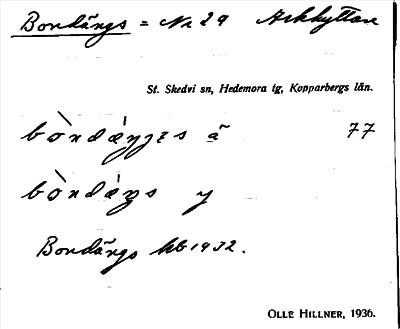 Bondängs = Nr 29 Arkhyttan
St. Skedvi sn, Hedemora tg, Kopparbergs län.
bòndǽŋʒɛs ã 77
bòndǽŋs y
Bondängs kb 1932.
OLLE HILLNER, 1936.